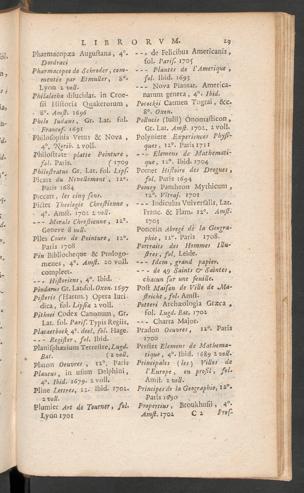 LIBRORVM. 29
Pharmacopæa Augustana, 4°.
Dordraci
Pharmacopée de Schroder, com-
mentée par Etmuller, 8°.
Lyon 2 voll.
Philalethæ dilucidat. in Croe-
sii Historia Quakerorum,
8°. Amst. 1696
Philo Judæus, Gr. Lat. fol.
Francof. 1691
Philosophia Vetus & Nova,
4°. Norib. 2 voll.
Philostrate platte Peinture,
fol. Paris. (1700
Philostratus Gr. Lat. fol. Lips.
Picart du Nivellement, 12°.
Paris 1684
Piccart, les cinq sens.
Pictet Theologie Chrestienne,
4°. Amst. 1701 2 voll.
--- Morale Chrestienne, 12°.
Geneve 8 voll.
Piles Cours de Peinture, 12°.
Paris 1708
Pin Bibliotheque & Prologo-
menes, 4°. Amst. 20 voll.
compleet.
--- Historiens, 4°. Ibid.
Pindarus Gr. Lat. fol. Oxon. 1697
Pistoris (Hartm.) Opera Juri-
dica, fol. Lipsiæ 2 voll.
Pithoei Codex Canonum, Gr.
Lat. fol. Paris. Typis Regiis,
Placaetboek 4°. deel, fol. Hage.
--- Register, fol. Ibid.
Planisphærium Terrestre, Lugd.
Bat. (2 voll.
Platon Oeuvres, 12°. Paris
Plautus, in usum Delphini,
4°. Ibid. 1679. 2 voll.
Pline Lettres, 12. Ibid. 1701.
2 voll.
Plumier Art de Tourner, fol.
Lyon 1701
--- de Felicibus Americanis,
fol. Paris. 1705
--- Plantes de l'Amerique,
fol. Ibid. 1693
--- Nova Plantar. America-
narum genera, 4°. Ibid.
Pocockii Carmen Tograi, &c.
8°. Oxon.
Pollucis (Julii) Onomasticon,
Gr. Lat. Amst. 1702, 2 voll.
Polyniere Experiences Physi-
ques, 12°. Paris 1711
--- Elemens de Mathemati-
que, 12°. Ibid. 1704
Pomet Histoire des Drogues,
fol. Paris 1694
Pomey Pantheon Mythicum,
12°. Vltraj. 1701
--- Indiculus Universalis, Lat.
Franc. & Flam. 12°. Amst.
1705
Poncein Abregé de la Geogra-
phie, 12°. Paris 1708.
Portraits des Hommes Illu-
stres, fol. Leide.
--- Idem, grand papier.
--- de 49 Saints & Saintes,
chacun sur une feuille.
Post Maison de Ville de Ma-
strichi, fol. Amst.
Potteri Archæologia Græca,
fol. Lugd. Bat. 1702
--- Charta Major.
Pradon Oeuvres, 12°. Paris
1700
Prestet Element de Mathema-
tique, 4°. Ibid. 1689 2 voll.
Principales (les) Villes de
l'Europe, en profil, fol.
Amst. 2 voll.
Principes de la Geographie, 12°.
Paris 1690
Propertius, Broukhusii, 4°.
Amst. 1702 C 2 Prof-